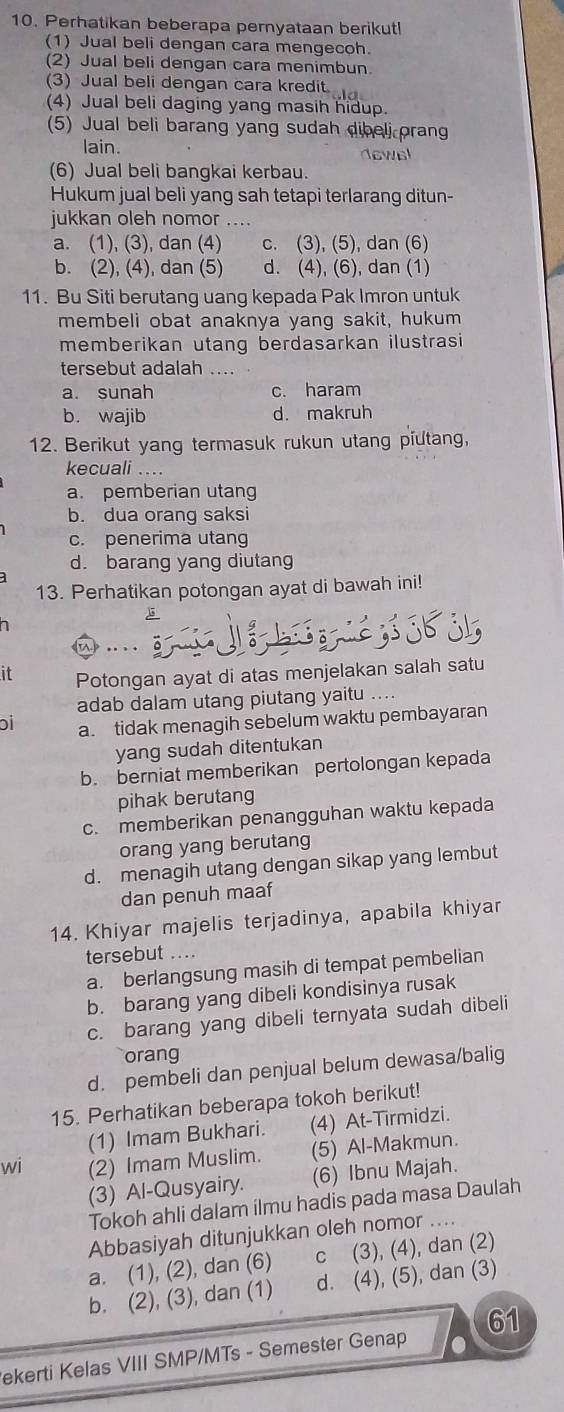 10. Perhatikan beberapa pernyataan berikut!
(1) Jual beli dengan cara mengecoh.
(2) Jual beli dengan cara menimbun.
(3) Jual beli dengan cara kredit.
(4) Jual beli daging yang masih hidup.
(5) Jual beli barang yang sudah dibeli orang
lain.
(6) Jual beli bangkai kerbau.
Hukum jual beli yang sah tetapi terlarang ditun-
jukkan oleh nomor ....
a. (1), (3), dan (4) c. (3), (5), dan (6)
b. (2), (4), dan (5) d. (4), (6), dan (1)
11. Bu Siti berutang uang kepada Pak Imron untuk
membeli obat anaknya yang sakit, hukum
memberikan utang berdasarkan ilustrasi
tersebut adalah ....
a. sunah c. haram
b. wajib d. makruh
12. Berikut yang termasuk rukun utang piutang,
kecuali ....
a. pemberian utang
b. dua orang saksi
c. penerima utang
d. barang yang diutang
13. Perhatikan potongan ayat di bawah ini!
وَاِنْ كَانَ ذُوْ عُسْرَةٍ فَنَظِرَةٌ اِلٰى مَيْسَرَةٍ ....
Potongan ayat di atas menjelakan salah satu
adab dalam utang piutang yaitu ....
a. tidak menagih sebelum waktu pembayaran
yang sudah ditentukan
b. berniat memberikan pertolongan kepada
pihak berutang
c. memberikan penangguhan waktu kepada
orang yang berutang
d. menagih utang dengan sikap yang lembut
dan penuh maaf
14. Khiyar majelis terjadinya, apabila khiyar
tersebut ....
a. berlangsung masih di tempat pembelian
b. barang yang dibeli kondisinya rusak
c. barang yang dibeli ternyata sudah dibeli
orang
d. pembeli dan penjual belum dewasa/balig
15. Perhatikan beberapa tokoh berikut!
(1) Imam Bukhari. (4) At-Tirmidzi.
(2) Imam Muslim. (5) Al-Makmun.
(3) Al-Qusyairy. (6) Ibnu Majah.
Tokoh ahli dalam ilmu hadis pada masa Daulah
Abbasiyah ditunjukkan oleh nomor ....
a. (1), (2), dan (6) c (3), (4), dan (2)
b. (2), (3), dan (1) d. (4), (5), dan (3)
ekerti Kelas VIII SMP/MTs - Semester Genap
61